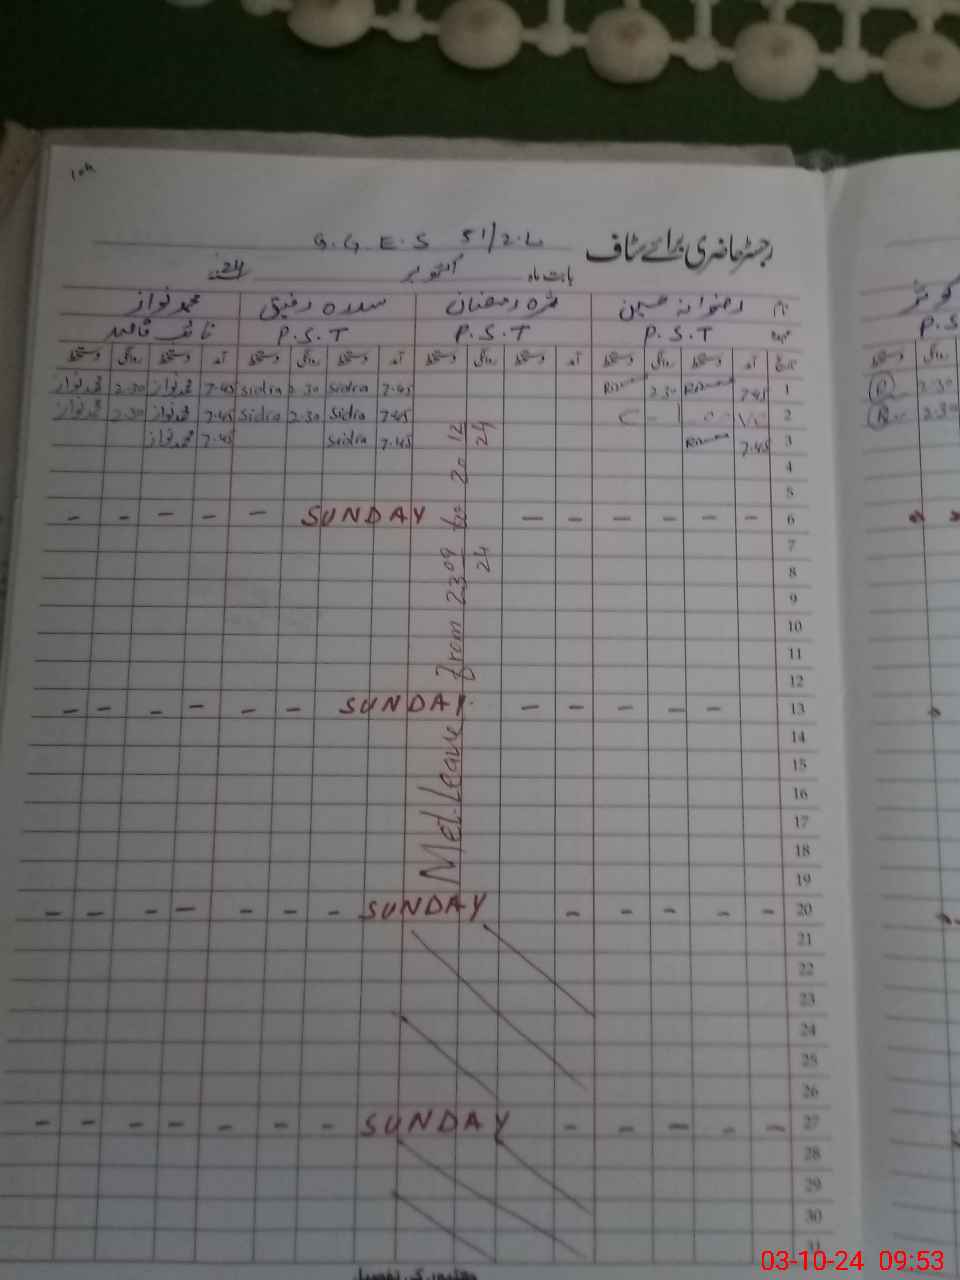 104
G.G.E.S 51/2.L رجسٹر حاضری برائے سٹاف
بابت ماہ اکتوبر 24
نام رضوانہ حسین رمضان سدرہ رفیق محمد نواز
عہدہ P.S.T P.S.T P.S.T نائب قاصد
تاریخ آمد دستخط روانگی دستخط آمد دستخط روانگی دستخط آمد دستخط روانگی دستخط آمد دستخط روانگی دستخط
1 7.45 2.30 7.45 Sidra 2.30 Sidra 7.45 محمد نواز 2.30 محمد نواز
2 7.45 Sidra 2.30 Sidra 7.45 محمد نواز 2.30 محمد نواز
3 7.45 7.45 Sidra 7.45 محمد نواز
4
5
6 - - - - - - SUNDAY - - - - -
7
8
9
10
11
12
13 - - - - - SUNDAY - - - - - -
14
15
16
17
18
19
20 - - - - - SUNDAY - - - - - - -
21
22
23
24
25
26
27 - - - - - SUNDAY - - - - - -
28
29
30
31
Met. Leave from 23 09/24 to 20 12/24
P.S
2.30
2.30
03-10-24 09:53